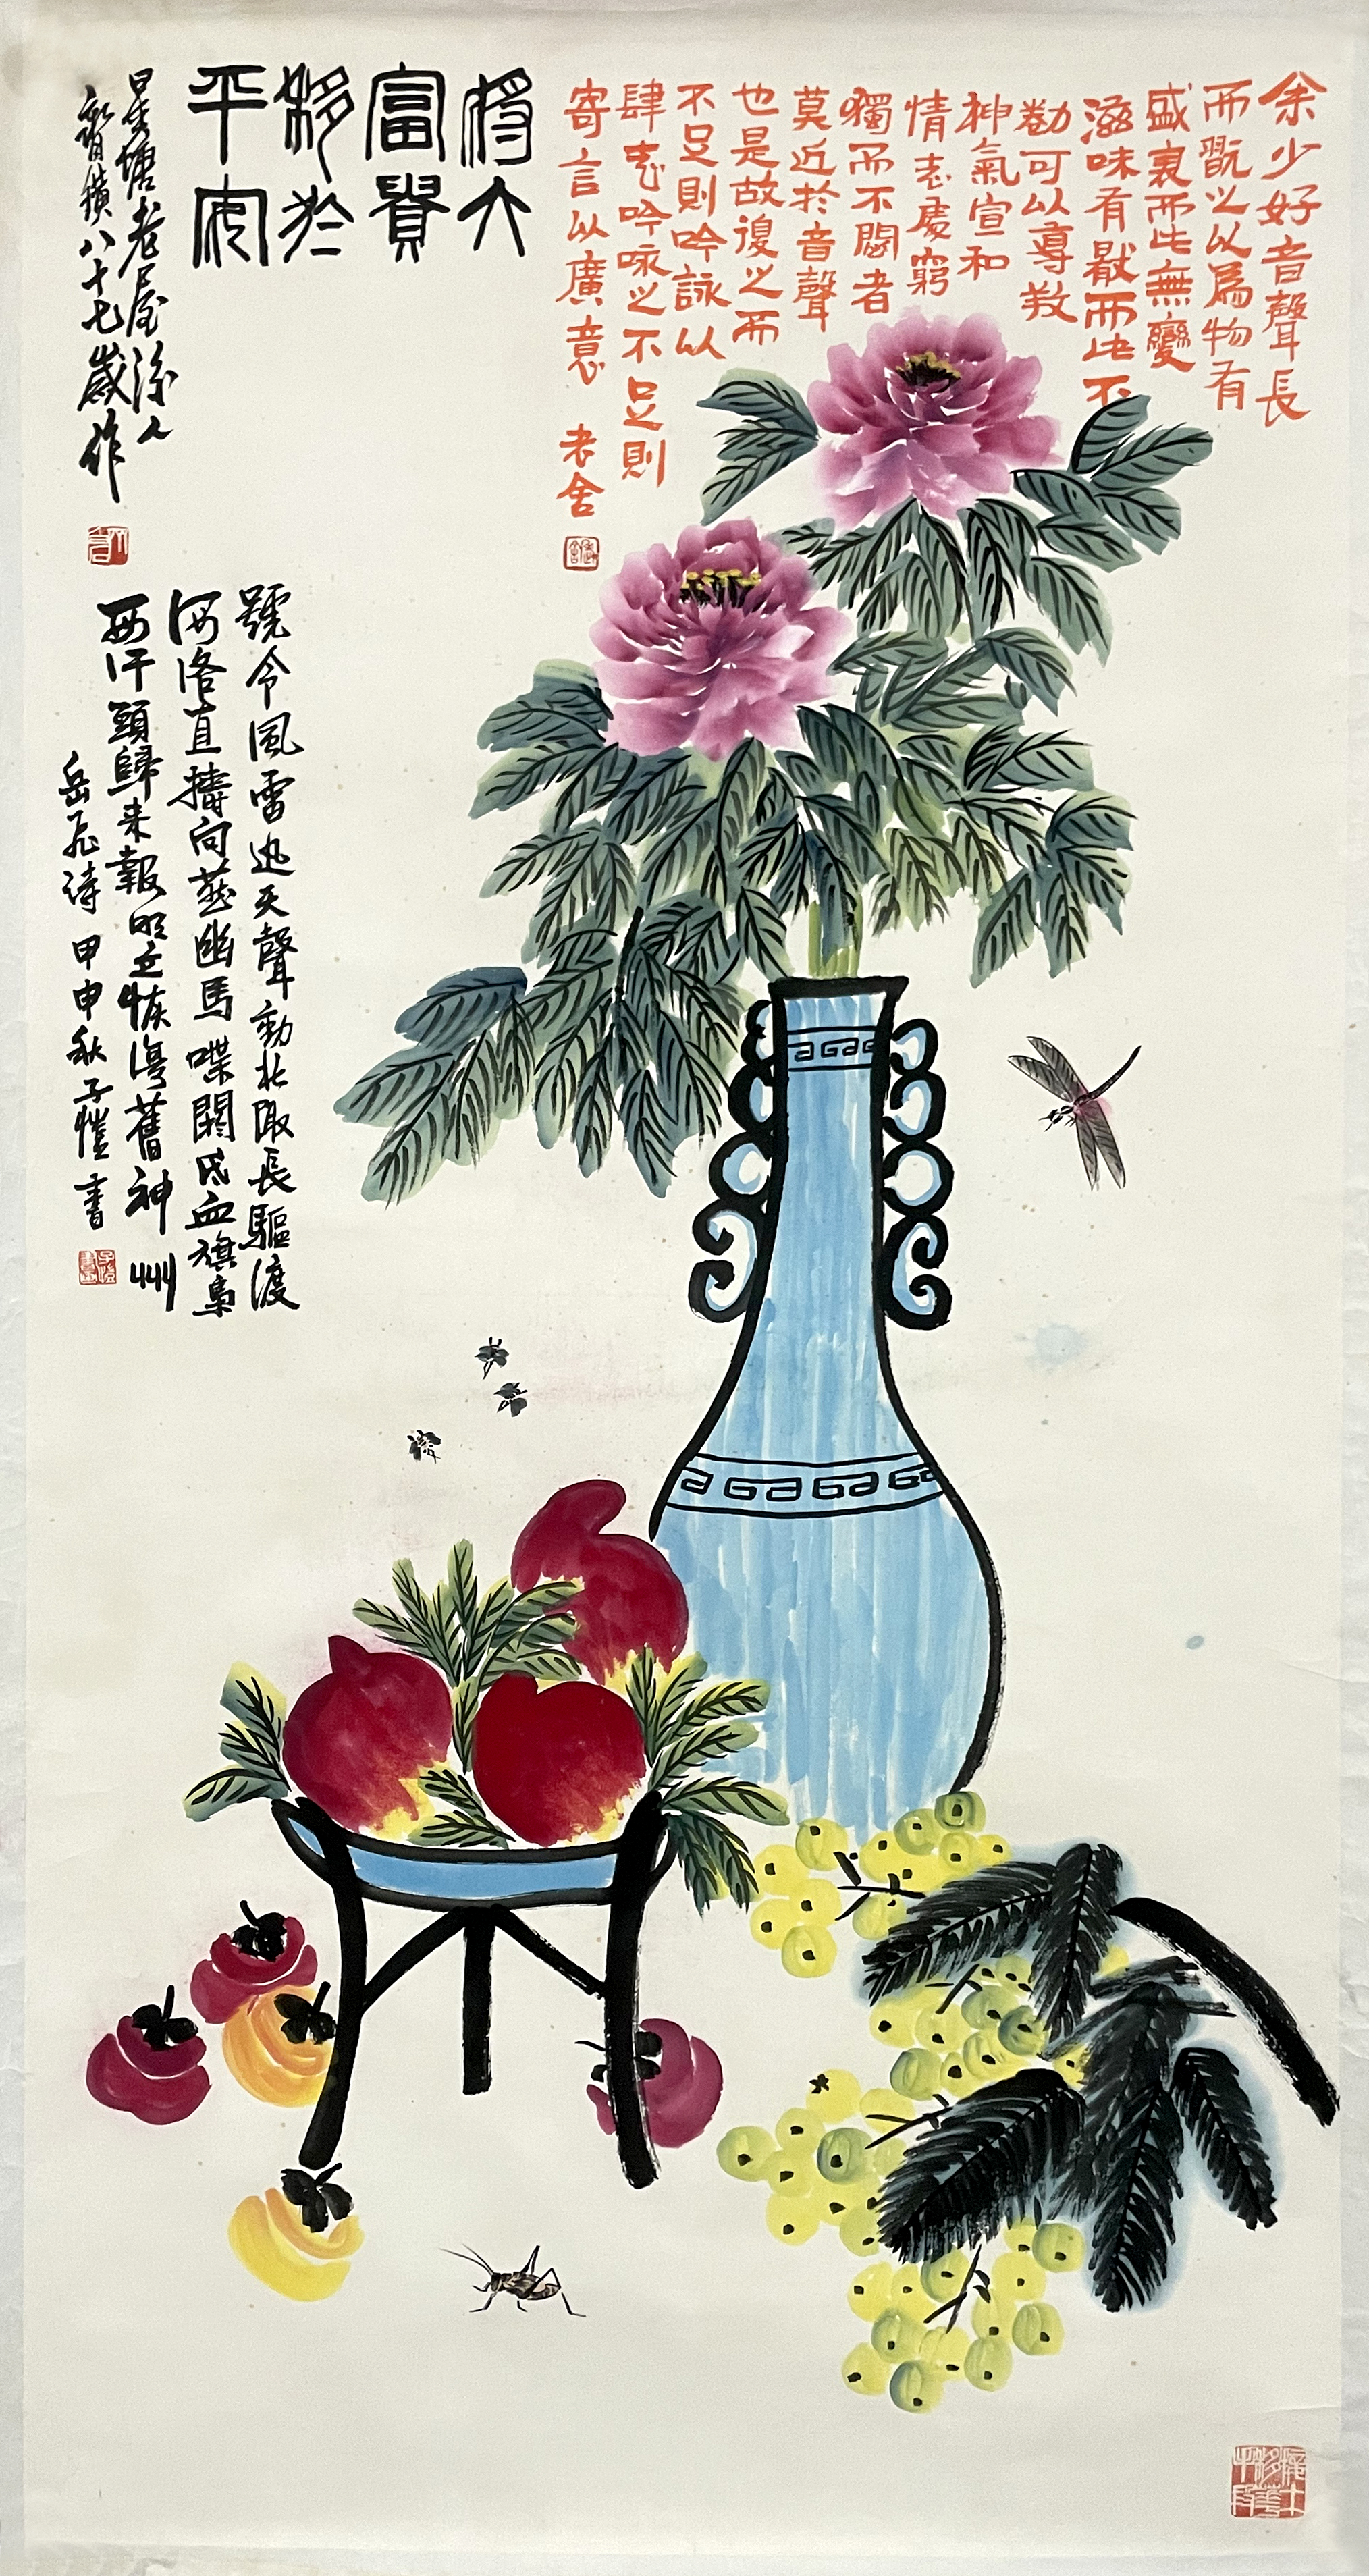 余少好音聲長
而翫之以為物有
盛衰而此無變
滋味有猒而此不
勌可以導教
神氣宣和
情志處窮
獨而不悶者
莫近於音聲
也是故復之而
不足則吟詠以
肆志吟咏之不足則
寄言以廣意 老舍
將大
富貴
移於
平安
星塘老屋後人
齊璜八十七歲作
號令風雷迅天聲動北陬長驅渡
河洛直擣向燕幽馬喋閼氏血旗梟
可汗頭歸来報明主恢復舊神州
岳飛詩 甲申秋子愷書